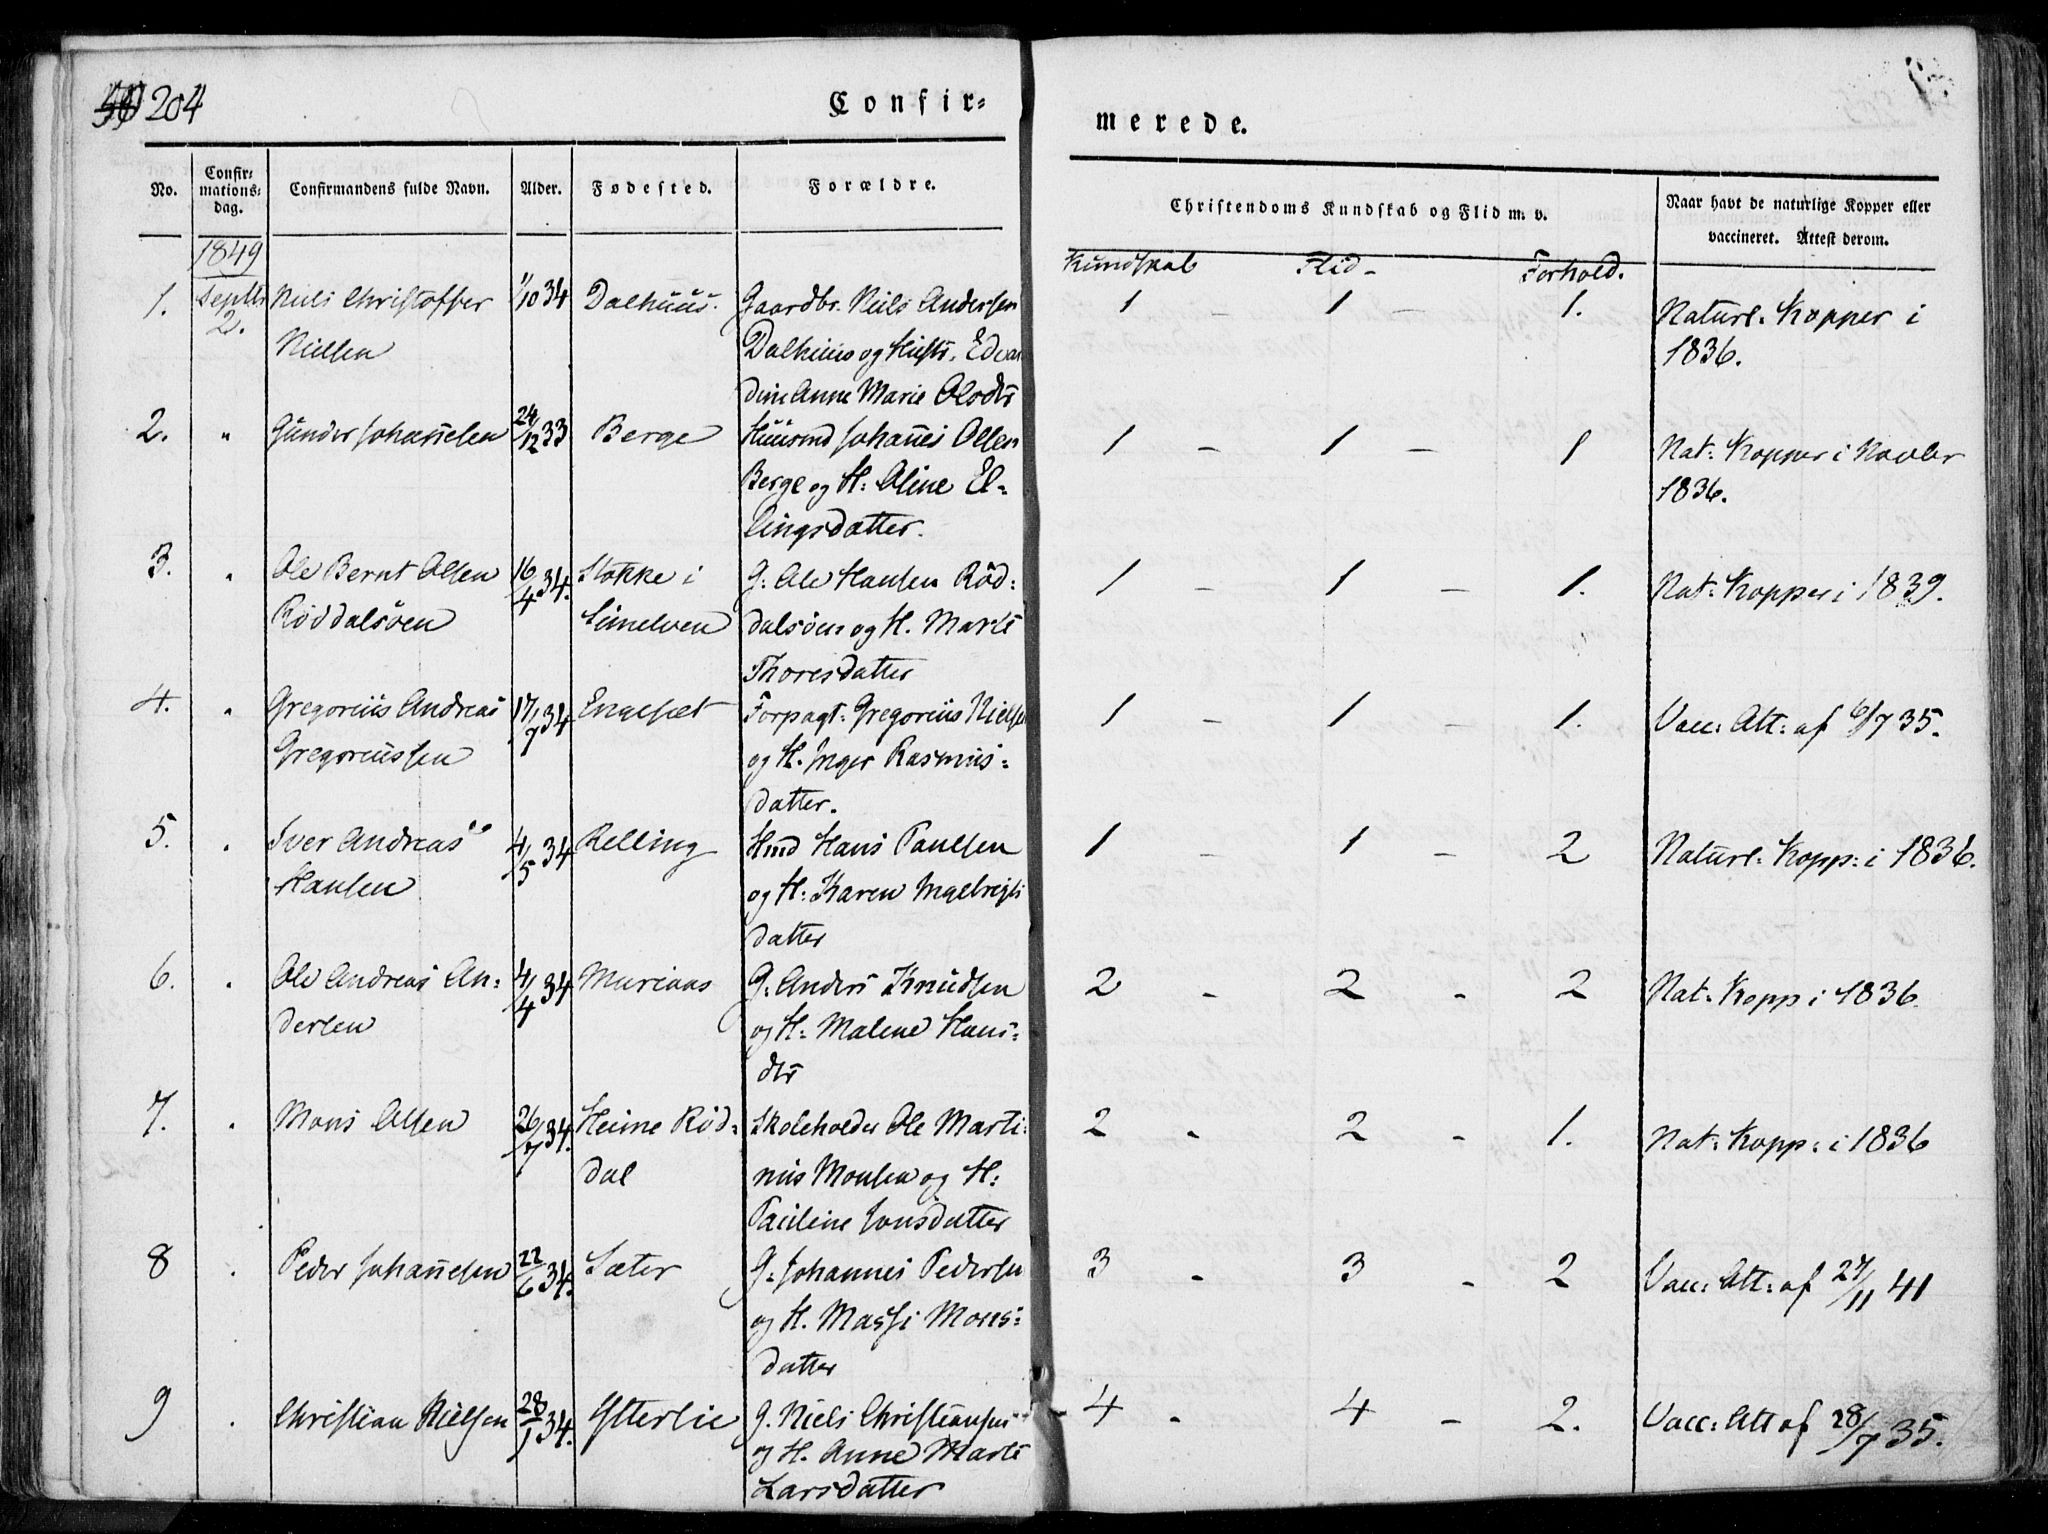 204
Confir-
merede.
No.
Confir-
mations-
dag.
Confirmandens fulde Navn.
Alder.
Fødested.
Forældre.
Christendoms Kundskab og Flid m. v.
Naar havt de naturlige Kopper eller
vaccineret. Attest derom.
1849
Kundskab Flid - Forhold.
1. Septbr Niels Christoffer 1/10 34 Dalhuus. Gaardbr. Niels Andersen 1 - 1 - 1. Naturl. Kopper i
2. Nielsen Dalhuus og Hustr. Edvar 1836.
dine Anne Marie Olsdtr
2. " Gunder Johannesen 24/12 33 Berge Huusmd Johannes Olsen 1 - 1 - 1 Nat: Kopper i Novbr
Berge og H: Oline El- 1836.
lingsdatter.
3. " Ole Bernt Olsen 16/4 34. Stokke i G: Ole Hansen Rød- 1 - 1 - 1. Nat: Kopper i 1839.
Røddalsøen Simelven dalsøen og H. Marte
Thoresdatter
4. " Gregorius Andreas 17/7 34 Engeset Forpagt: Gregorius Nielse 1 - 1 - 1. Vacc: Att: af 6/7 35.
Gregoriussen og H. Inger Rasmus-
datter.
5. " Iver Andreas 4/5 34 Relling Hmd Hans Paulsen 1 - 1 - 2 Naturl: Kopp: i 1836.
Hansen og H: Karen Ingebrigts
datter
6. " Ole Andreas An- 4/4 34 Mariaas G. Anders Knudsen 2 - 2 - 2 Nat. Kopp i 1836.
dersen og H: Malene Hans-
dtr
7. " Mons Olsen 26/7 34. Heime Rød- Skoleholder Ole Marti- 2 - 2 - 1. Nat: Kopp: i 1836
dal nus Monsen og H:
Pauline Jonsdatter
8 . Peder Johannesen 22/6 34. Sæter G. Johannes Pedersen 3 - 3 - 2 Vacc: Att: af 27/11 41
og H. Massi Mons-
datter
9 . Christian Nielsen 28/1 34. Ytterlie G. Niels Christiansen 4 - 4 - 2. Vacc: Att af 28/7 35.
og H. Anne Marte
Larsdatter